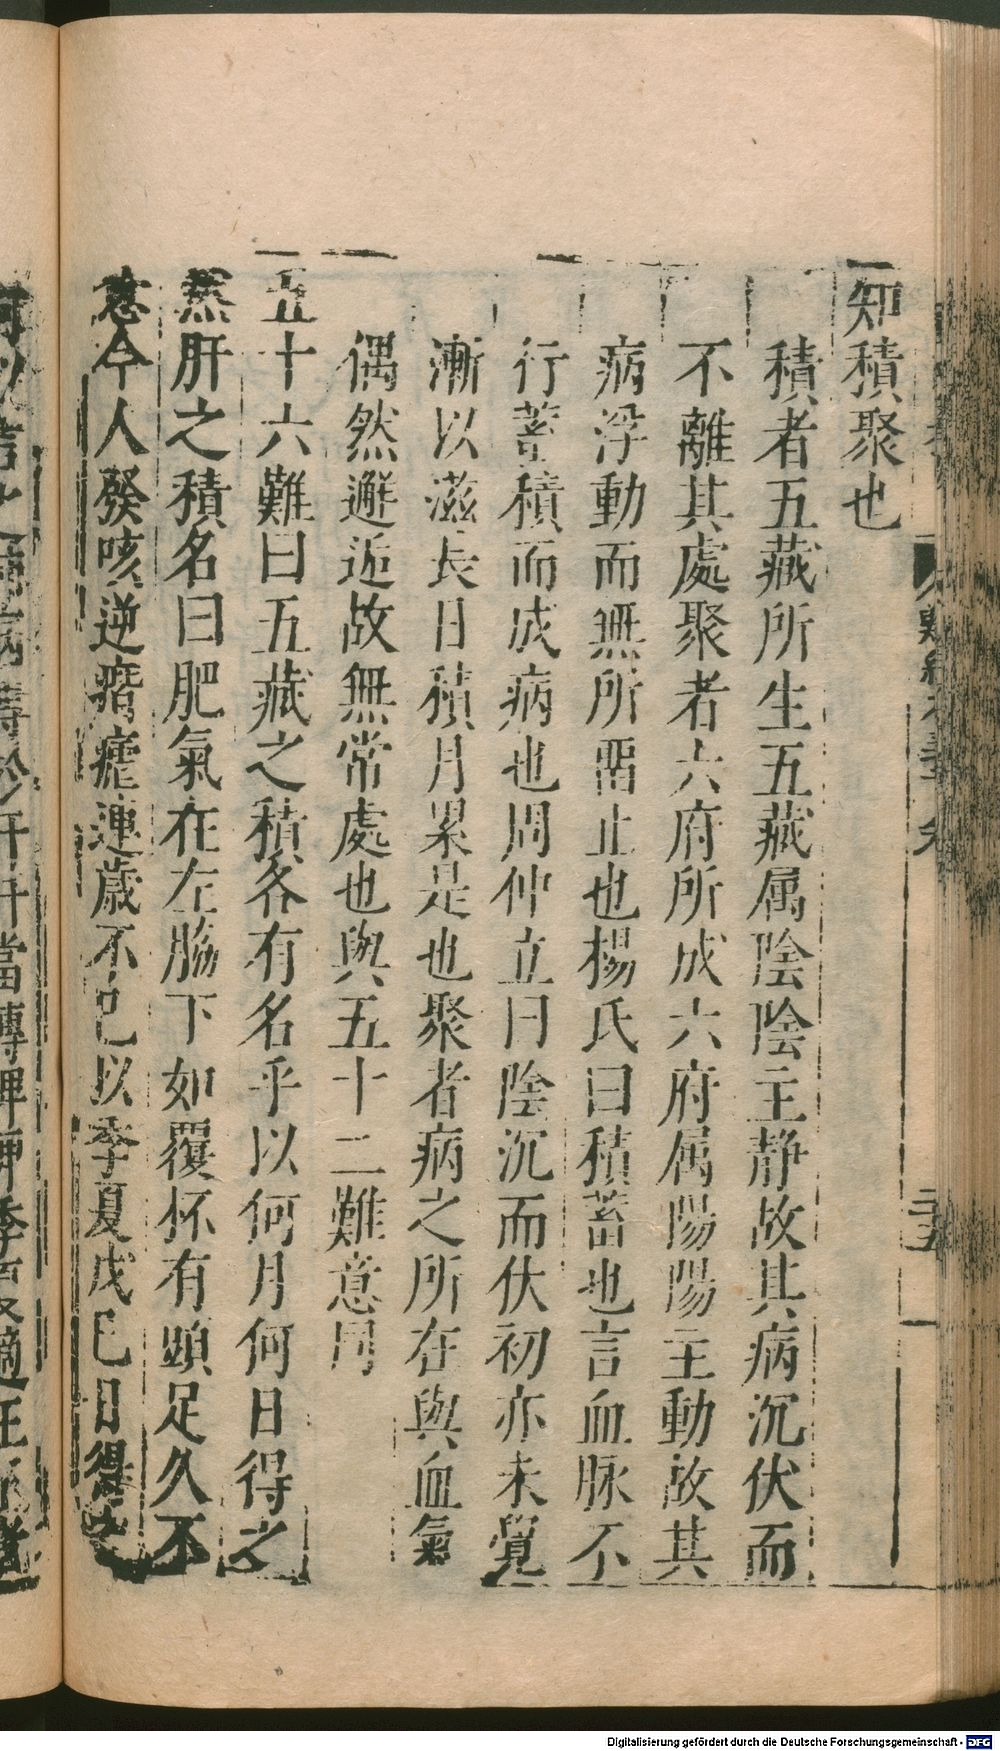 知積聚也
積者五藏所生五藏属陰陰主静故其病沉伏而
不離其處聚者六府所成六府属陽陽主動故其
病浮動而無所畱止也楊氏曰積蓄也言血脉不
行蓄積而成病也周仲立曰陰沉而伏初亦未覺
漸以滋長日積月累是也聚者病之所在與血氣
偶然邂逅故無常處也與五十二難意同
五十六難曰五藏之積各有名乎以何月何日得之
然肝之積名曰肥氣在左脇下如覆杯有頭足久不
愈令人發咳逆痎瘧連歳不已以季夏戊己日得之
何以言之肺病傳於肝肝當傳脾脾季夏適王王者
二十五
Digitalisierung gefördert durch die Deutsche Forschungsgemeinschaft - DFG